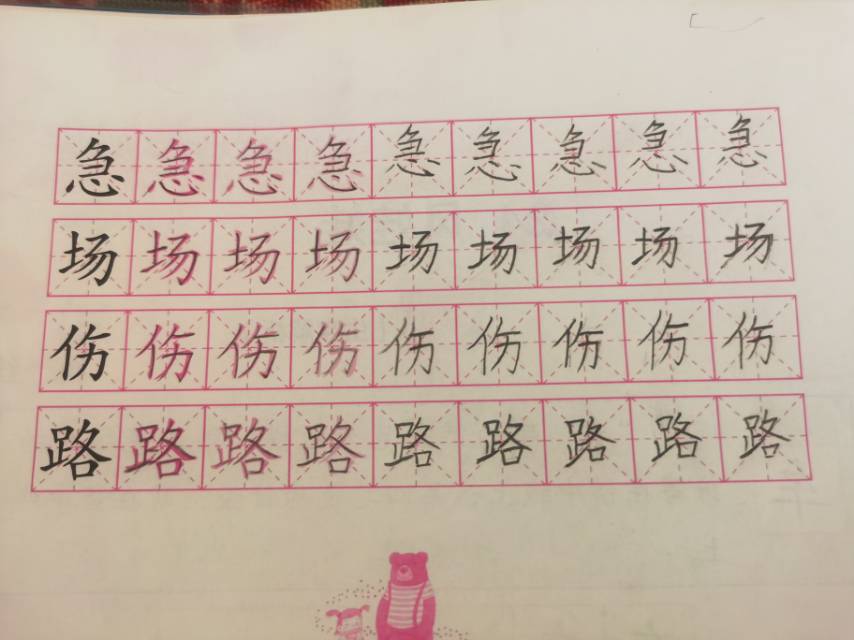 急急急急急急急急急
场场场场场场场场场
伤伤伤伤伤伤伤伤伤
路路路路路路路路路